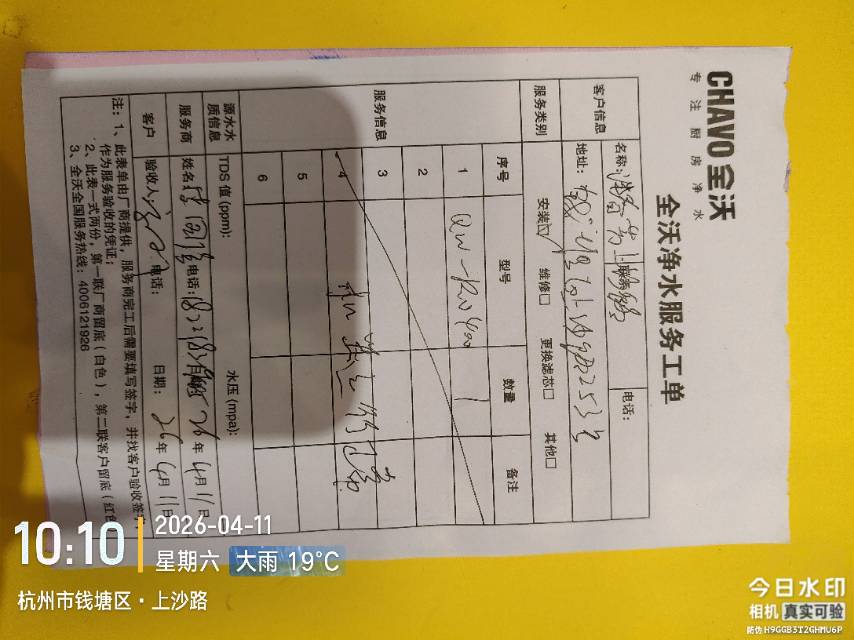 CHAVO全沃
专注厨房净水
全沃净水服务工单
客户信息
名称:
电话:
地址:
服务类别
安装☑ 维修□ 更换滤芯□ 其他□
服务信息
序号 型号 数量 备注
1 QW-RO400 1
2
3
4
5
6
源水水质信息
TDS值(ppm): 水压(mpa):
服务商
姓名: 电话: 26年4月11日
客户
验收人: 电话: 日期: 26年4月11日
注:1、此表单由厂商提供,服务商完工后需要填写签字,并找客户验收签字
作为服务验收的凭证;
2、此表一式两份,第一联厂商留底(白色),第二联客户留底(红色
3、全沃全国服务热线:4006121926
10:10
2026-04-11
星期六 大雨 19℃
杭州市钱塘区·上沙路
今日水印
相机 真实可验
防伪 H9GGB3T2GHMU6P